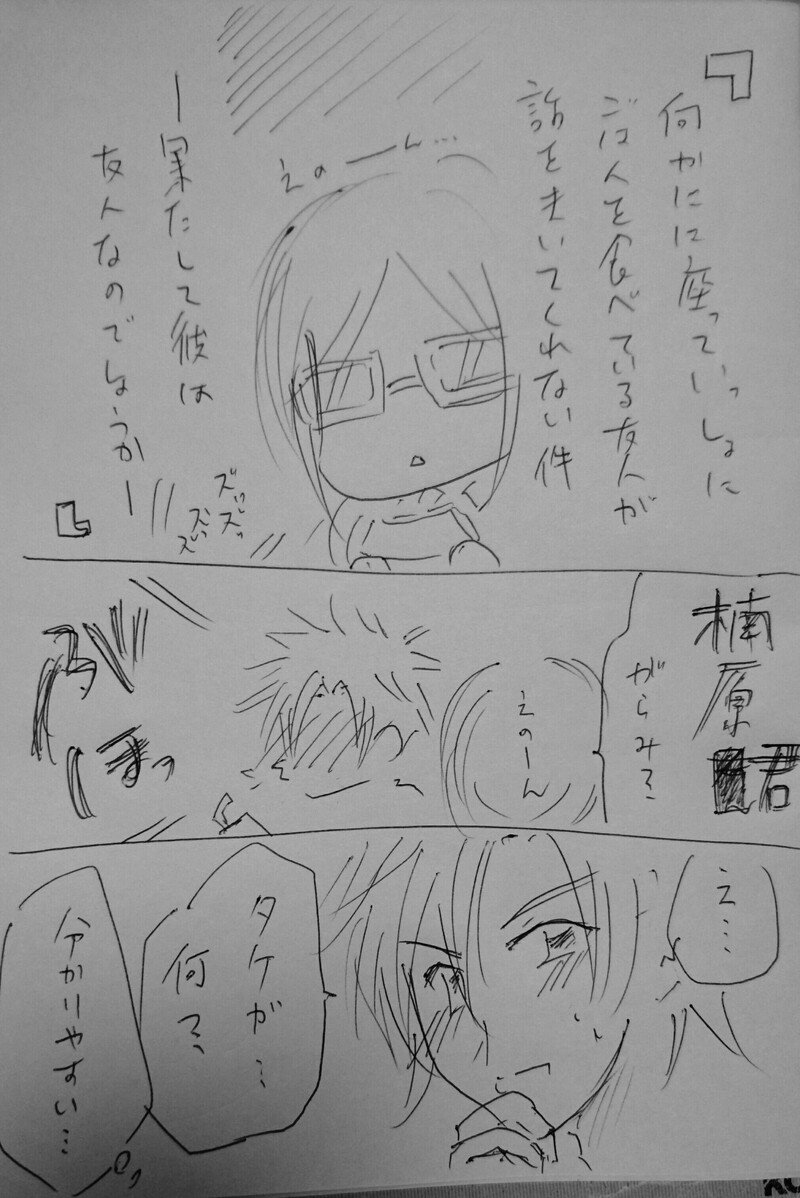 『
何かに座っていっしょに
ごはんを食べている友人が
話をきいてくれない件
ー果たして彼は
友人なのでしょうかー
』
えのーん…
ズッズッ
ズッズ
楠原君
がらみ?
えのーん
ほっ
え…
タケが…
何?
分かりやすい…